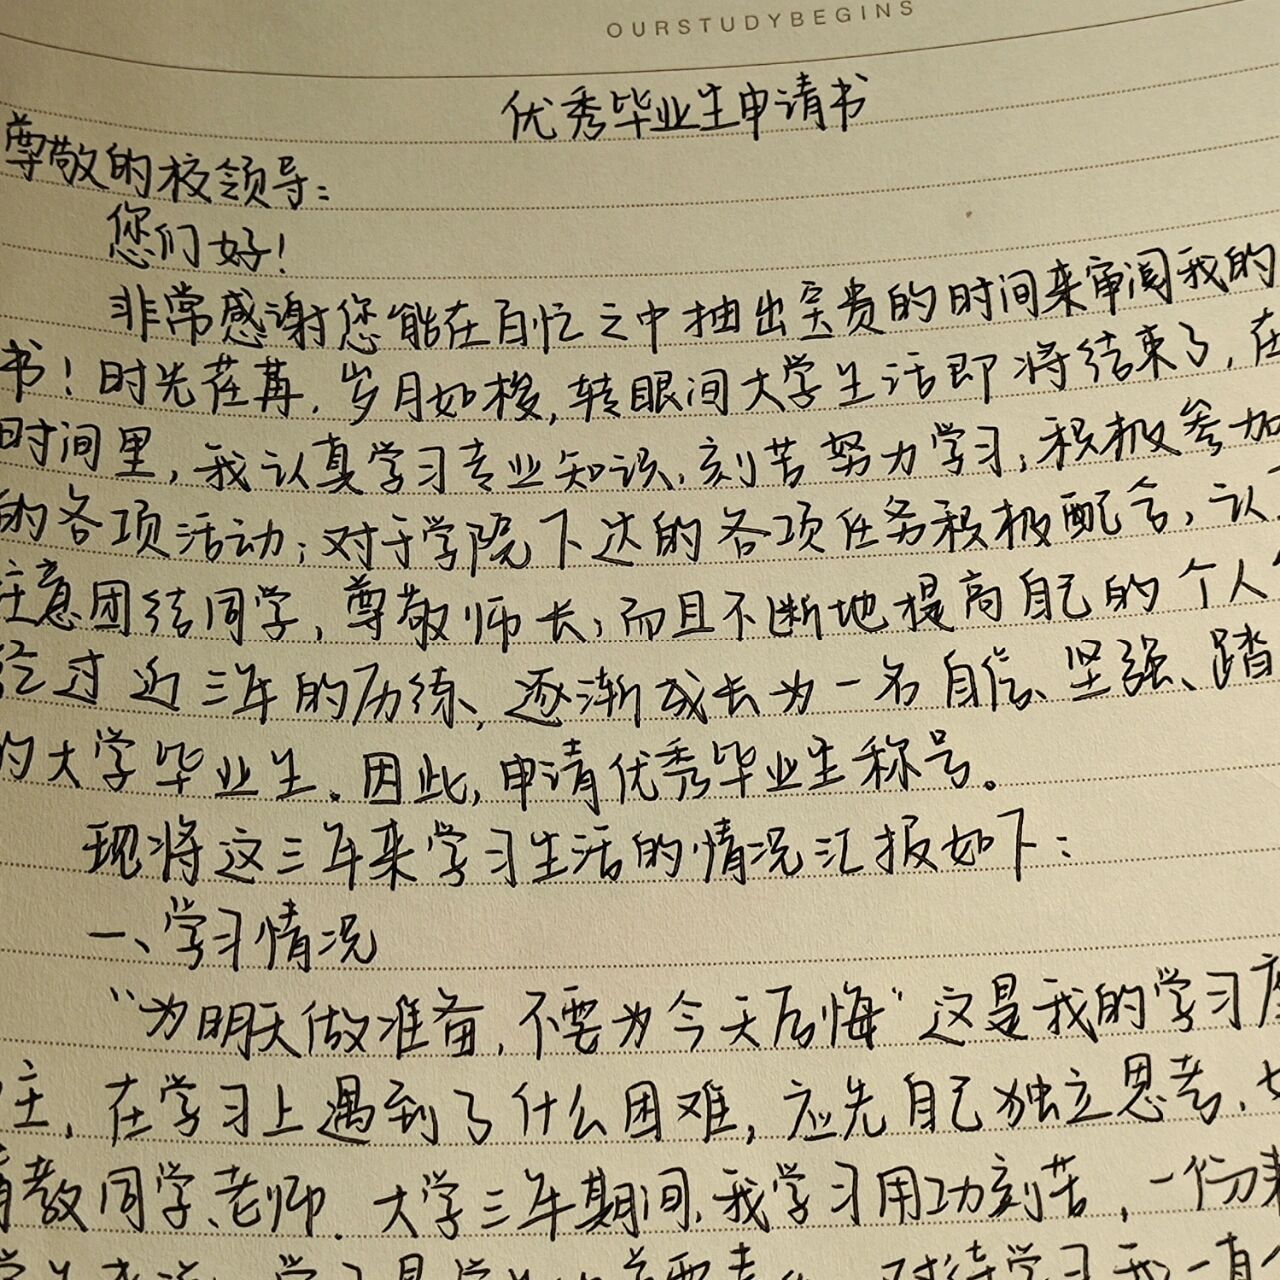 OURSTUDYBEGINS
优秀毕业生申请书
尊敬的校领导：
您们好！
非常感谢您能在百忙之中抽出宝贵的时间来审阅我的
书！时光荏苒，岁月如梭，转眼间大学生活即将结束了，在
时间里，我认真学习专业知识，刻苦努力学习，积极参加
的各项活动；对于学院下达的各项任务积极配合，认
注意团结同学，尊敬师长，而且不断地提高自己的个人
经过近三年的历练，逐渐成长为一名自信、坚强、踏
的大学毕业生。因此，申请优秀毕业生称号。
现将这三年来学习生活的情况汇报如下：
一、学习情况
“为明天做准备，不要为今天后悔”这是我的学习
在学习上遇到了什么困难，应先自己独立思考，
请教同学、老师。大学三年期间，我学习用功刻苦，一份耕
对待学习我一直